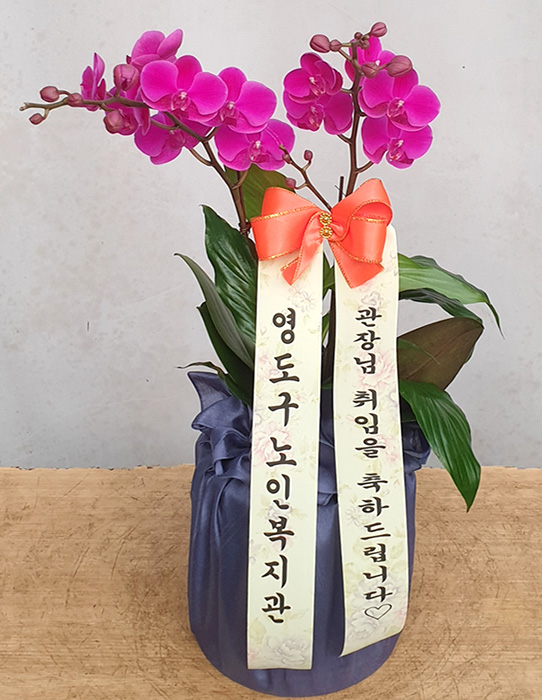 ♡관장님 취임을 축하드립니다♡
영도구노인복지관